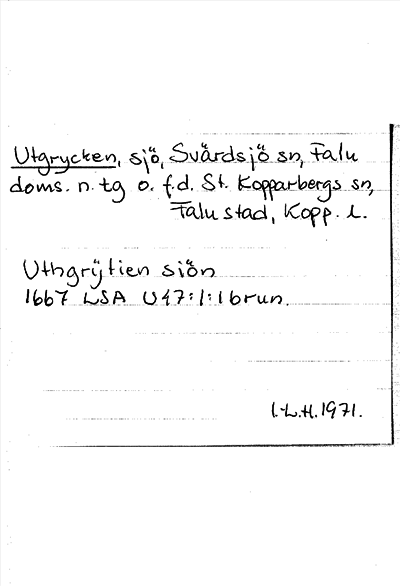 Utgrycken, sjö, Svärdsjö sn, Falu
doms. n. tg o. f.d. St. Kopparbergs sn,
Falu stad, Kopp. l.
Uthgrÿtien siön
1667 LSA U47:1:1 brun.
I.L.H. 1971.